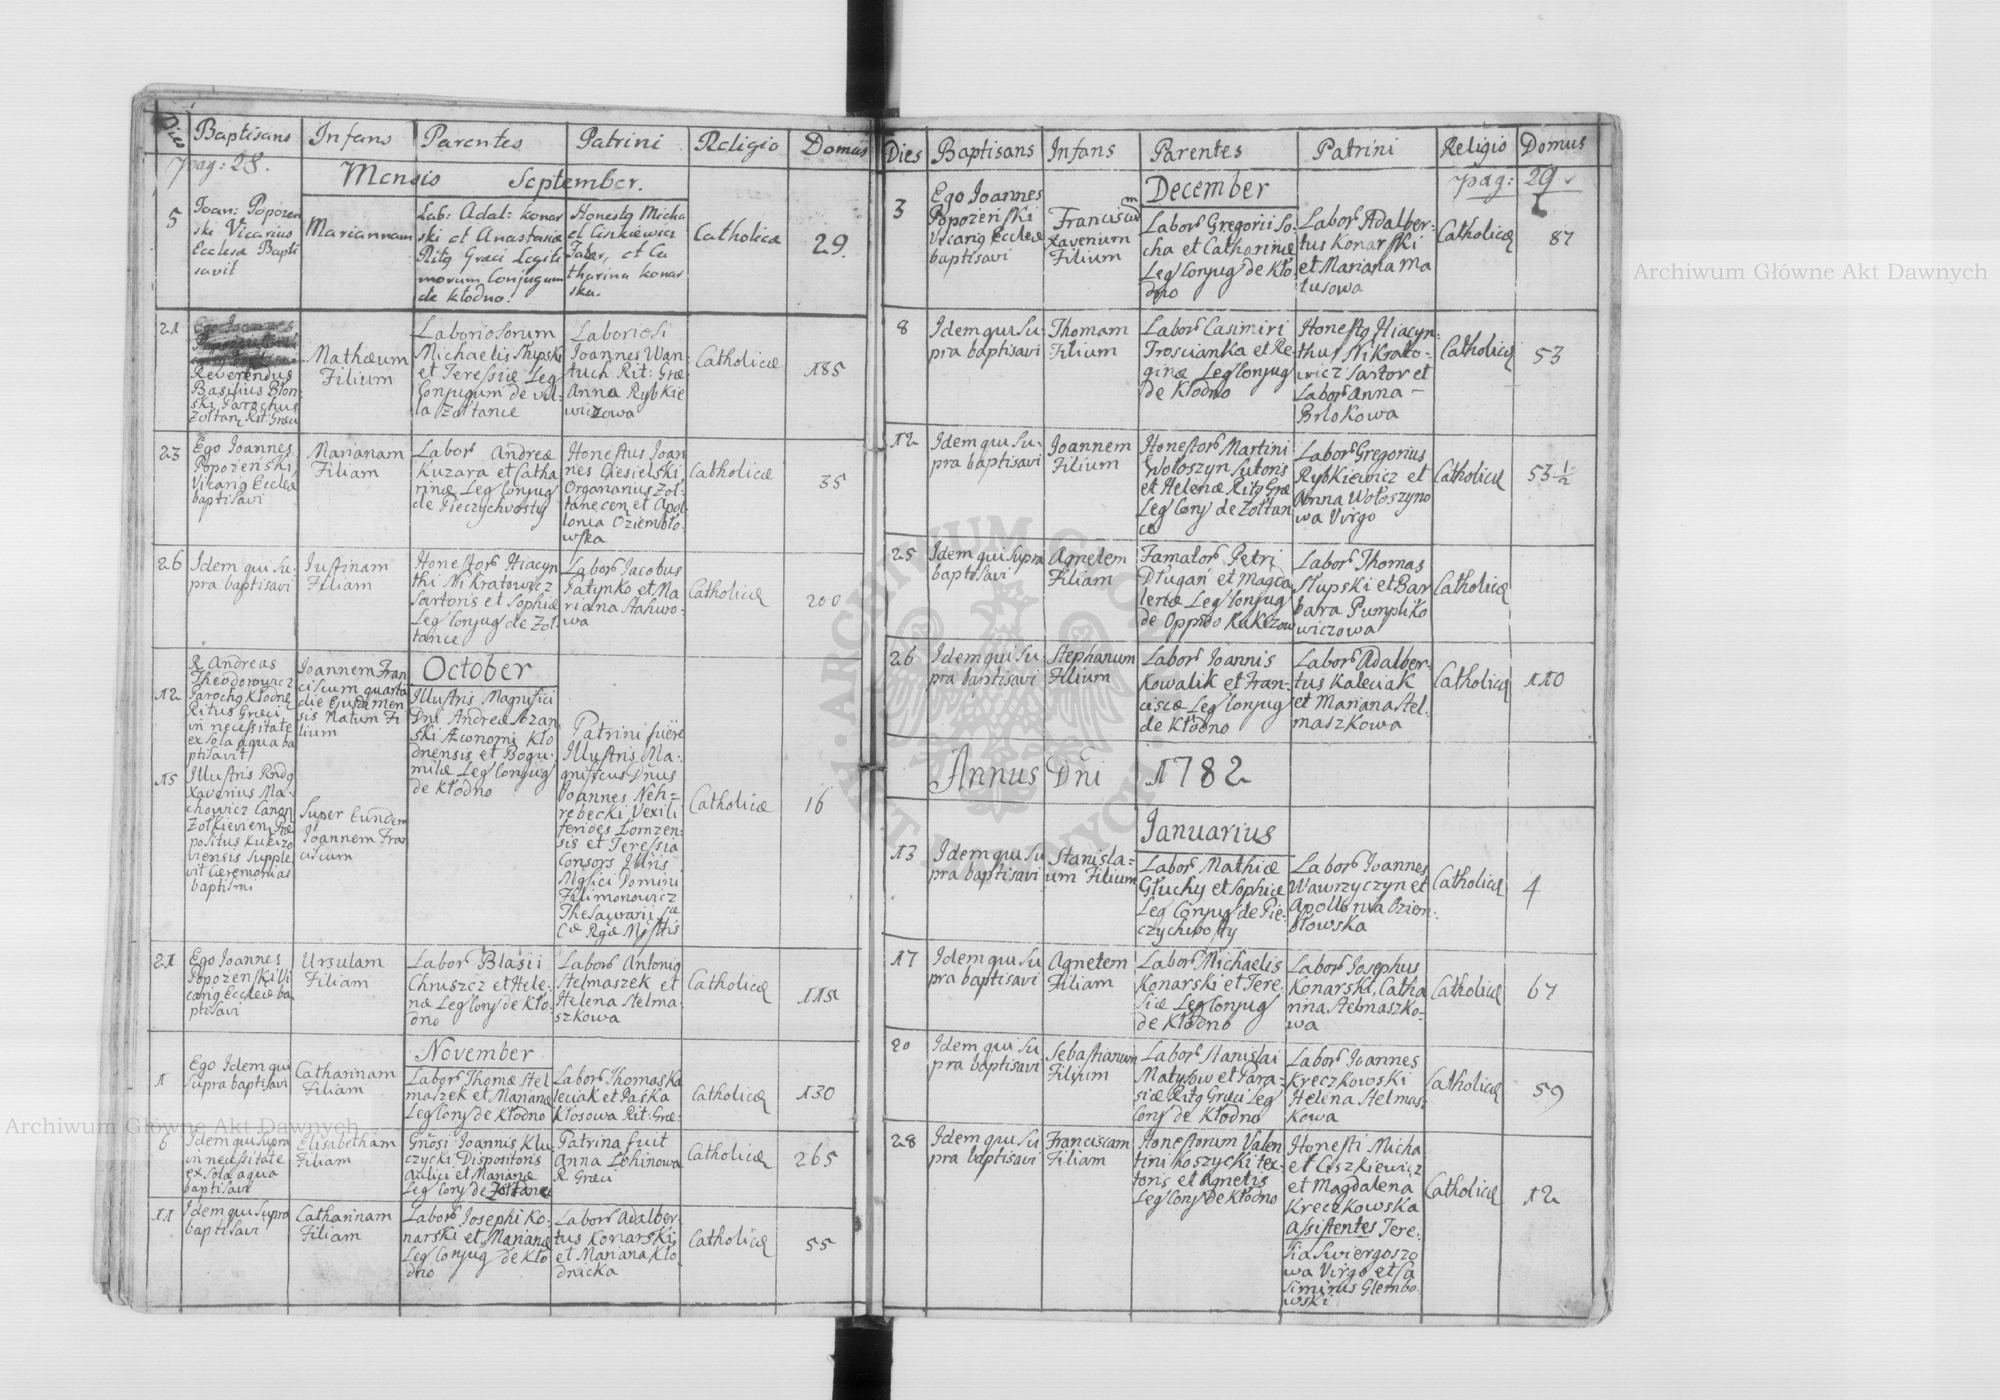 Dies Baptisans Infans Parentes Patrini Religio Domus
pag: 28.
Mensis September.
5
Joan: Popozen
ski Vicarius
Ecclesa Bapti
savit
Mariannam
Lab: Adal: Konar
ski et Anastasiæ
Ritg Græci Legiti
morum Conjugum
de Kłodno.
Honestg Micha
el Ciszkiewicz
Faber, et Ca
tharina Konar
ska.
Catholica
29.
21
Reverendus
Basilius Błon
ski Parochus
Zołtan, Rit: Græci
Mathæum
Filium
Laboriosorum
Michaelis Słupski
et Teressiæ Leg
Conjugum de vil-
la Zołtance
Laboriosi
Joannes Wan
tuch Rit: Græ
Anna Rybkie
wiczowa
Catholicæ
185
23
Ego Joannes
Popozeński
Vicarig Eccleæ
baptisavi
Marianam
Filiam
Labors Andreæ
Kuzara et Catha
rinæ Leg Conjug
de Pieczychvosty
Honestus Joan
nes Ciesielski
Organarius Zoł-
tanecen et Apol-
lonia Oziembło-
wska
Catholicæ
35
26
Idem qui Su-
pra baptisavi
Justinam
Filiam
Honestors Hiacyn
thi Nikratowicz
Sartoris et Sophiæ
Leg Conjug de Zoł-
tance
Labors Jacobus
Patynko et Ma
riana Stahwo-
wa
Catholicæ
200
October
12
R Andreas
Theodorowicz
Parochg Kłodne
Ritus Græci
in necessitate
ex sola aqua ba
ptisavit
Joannem Fran
ciscum quarta
die Ejusd men
sis Natum Fi
lium
Illustris Magnifici
Dni Andreæ Sozan
ski Æconomi Kło
dnensis et Bogu-
milæ Leg Conjug
de Kłodno
Patrini fuere
Illustris Ma-
gnificus Dnus
Joannes Neh=
rebecki Vexili
ferides Lomzen-
sis et Teressia
Consors Illris
Mgfici Domini
Filimonowicz
Thesaurarii
15
Illustris Rndg
Xaverius Ma-
chowicz Canon
Zołkievien, Præ
positus Kukizo
viensis Supple
vit Cæremonias
baptismi
Super Eundem
Joannem Fran
ciscum
Catholicæ
16
21
Ego Joannes
Popozenski Vi
carig Eccleæ ba
ptisavi
Ursulam
Filiam
Labors Blasii
Chruszcz et Hele-
næ Leg Conj de Kło-
dno
Labors Antonig
Stelmaszek et
Helena Stelma-
szkowa
Catholicæ
112
November
1
Ego Idem qui
supra baptisavi
Catharinam
Filiam
Labors Thomæ Stel
maszek et Marianæ
Leg Conj de Kłodno
Labors Thomas Ka
leciak et Paska
Kłosowa Rit: Græ:
Catholicæ
130
6
Idem qui supra
in necessitate
ex sola aqua
baptisavi
Elisabetham
Filiam
Gnosi Joannis Klu
czycki Dispositoris
Aulici et Marianæ
Leg Conj de Zołtance
Patrina fuit
Anna Lehinowa
R. Græci
Catholicæ
265
11
Idem qui supra
baptisavi
Catharinam
Filiam
Labors Josephi Ko-
narski et Marianæ
Leg Conjug de Kło
dno
Labors Adalber
tus Konarski
et Mariana Kło
dnicka
Catholicæ
55
Dies Baptisans Infans Parentes Patrini Religio Domus
pag: 29.
December
3
Ego Joannes
Popozeński
Vicarig Eccleæ
baptisavi
Franciscum
Xavenium
Filium
Labors Gregorii So-
cha et Catharinæ
Leg Conjug de Kło
dno
Labors Adalber-
tus Konarski
et Mariana Ma
tusowa
Catholicæ
87
8
Idem qui Su-
pra baptisavi
Thomam
Filium
Labors Casimiri
Troscianka et Re-
ginæ Leg Conjug
de Kłodno
Honestg Hiacyn-
thus Nikrato-
wicz Sartor et
Labors Anna -
Brlokowa
Catholicæ
53
12
Idem qui Su-
pra baptisavi
Joannem
Filium
Honestors Martini
Wołoszyn Sutoris
et Helenæ Ritg Græ
Leg Conj de Zołtan
ce
Labors Gregorius
Rybkiewicz et
Anna Wołoszyno
wa Virgo
Catholicæ
53 1/2
25
Idem qui supra
baptisavi
Agnetem
Filiam
Famators Petri
Długan et Magda
lenæ Leg Conjug
de Oppido Kukizow
Labors Thomas
Słupski et Bar
bara Pumpliko
wiczowa
Catholicæ
26
Idem qui Su-
pra baptisavi
Stephanum
Filium
Labors Joannis
Kowalik et Fran-
ciscæ Leg Conjug
de Kłodno
Labors Adalber-
tus Kaleciak
et Mariana Stel-
maszkowa
Catholicæ
110
Annus Dni 1782
Januarius
13
Idem qui Su
pra baptisavi
Stanisla=
um Filium
Labors Mathiæ
Głuchy et Sophiæ
Leg Conjug de Pie-
czychwosty
Labors Joannes
Wawrzyczyn et
Apollonia Oziem-
błowska
Catholicæ
4
17
Idem qui Su
pra baptisavi
Agnetem
Filiam
Labors Michaelis
Konarski et Tere-
siæ Leg Conjug
de Kłodno
Labors Josephus
Konarski, Catha
rina Stelmaszko-
wa
Catholicæ
67
20
Idem qui Su
pra baptisavi
Sebastianum
Filium
Labors Stanislai
Matysow et Para-
siæ Ritg Græci Leg
Conj de Kłodno
Labors Joannes
Kreczkowski
Helena Stelmasz-
kowa
Catholicæ
59
28
Idem qui Su
pra baptisavi
Franciscam
Filiam
Honestorum Valen
tini Koszycki tex-
toris et Agnetis
Leg Conj de Kłodno
Honesti Micha
el Ciszkiewicz
et Magdalena
Kreczkowska
Assistentes Tere-
sia Swiergoszo
wa Virgo et Ca
simirus Glembo
wski
Catholicæ
12
Archiwum Główne Akt Dawnych
Archiwum Główne Akt Dawnych